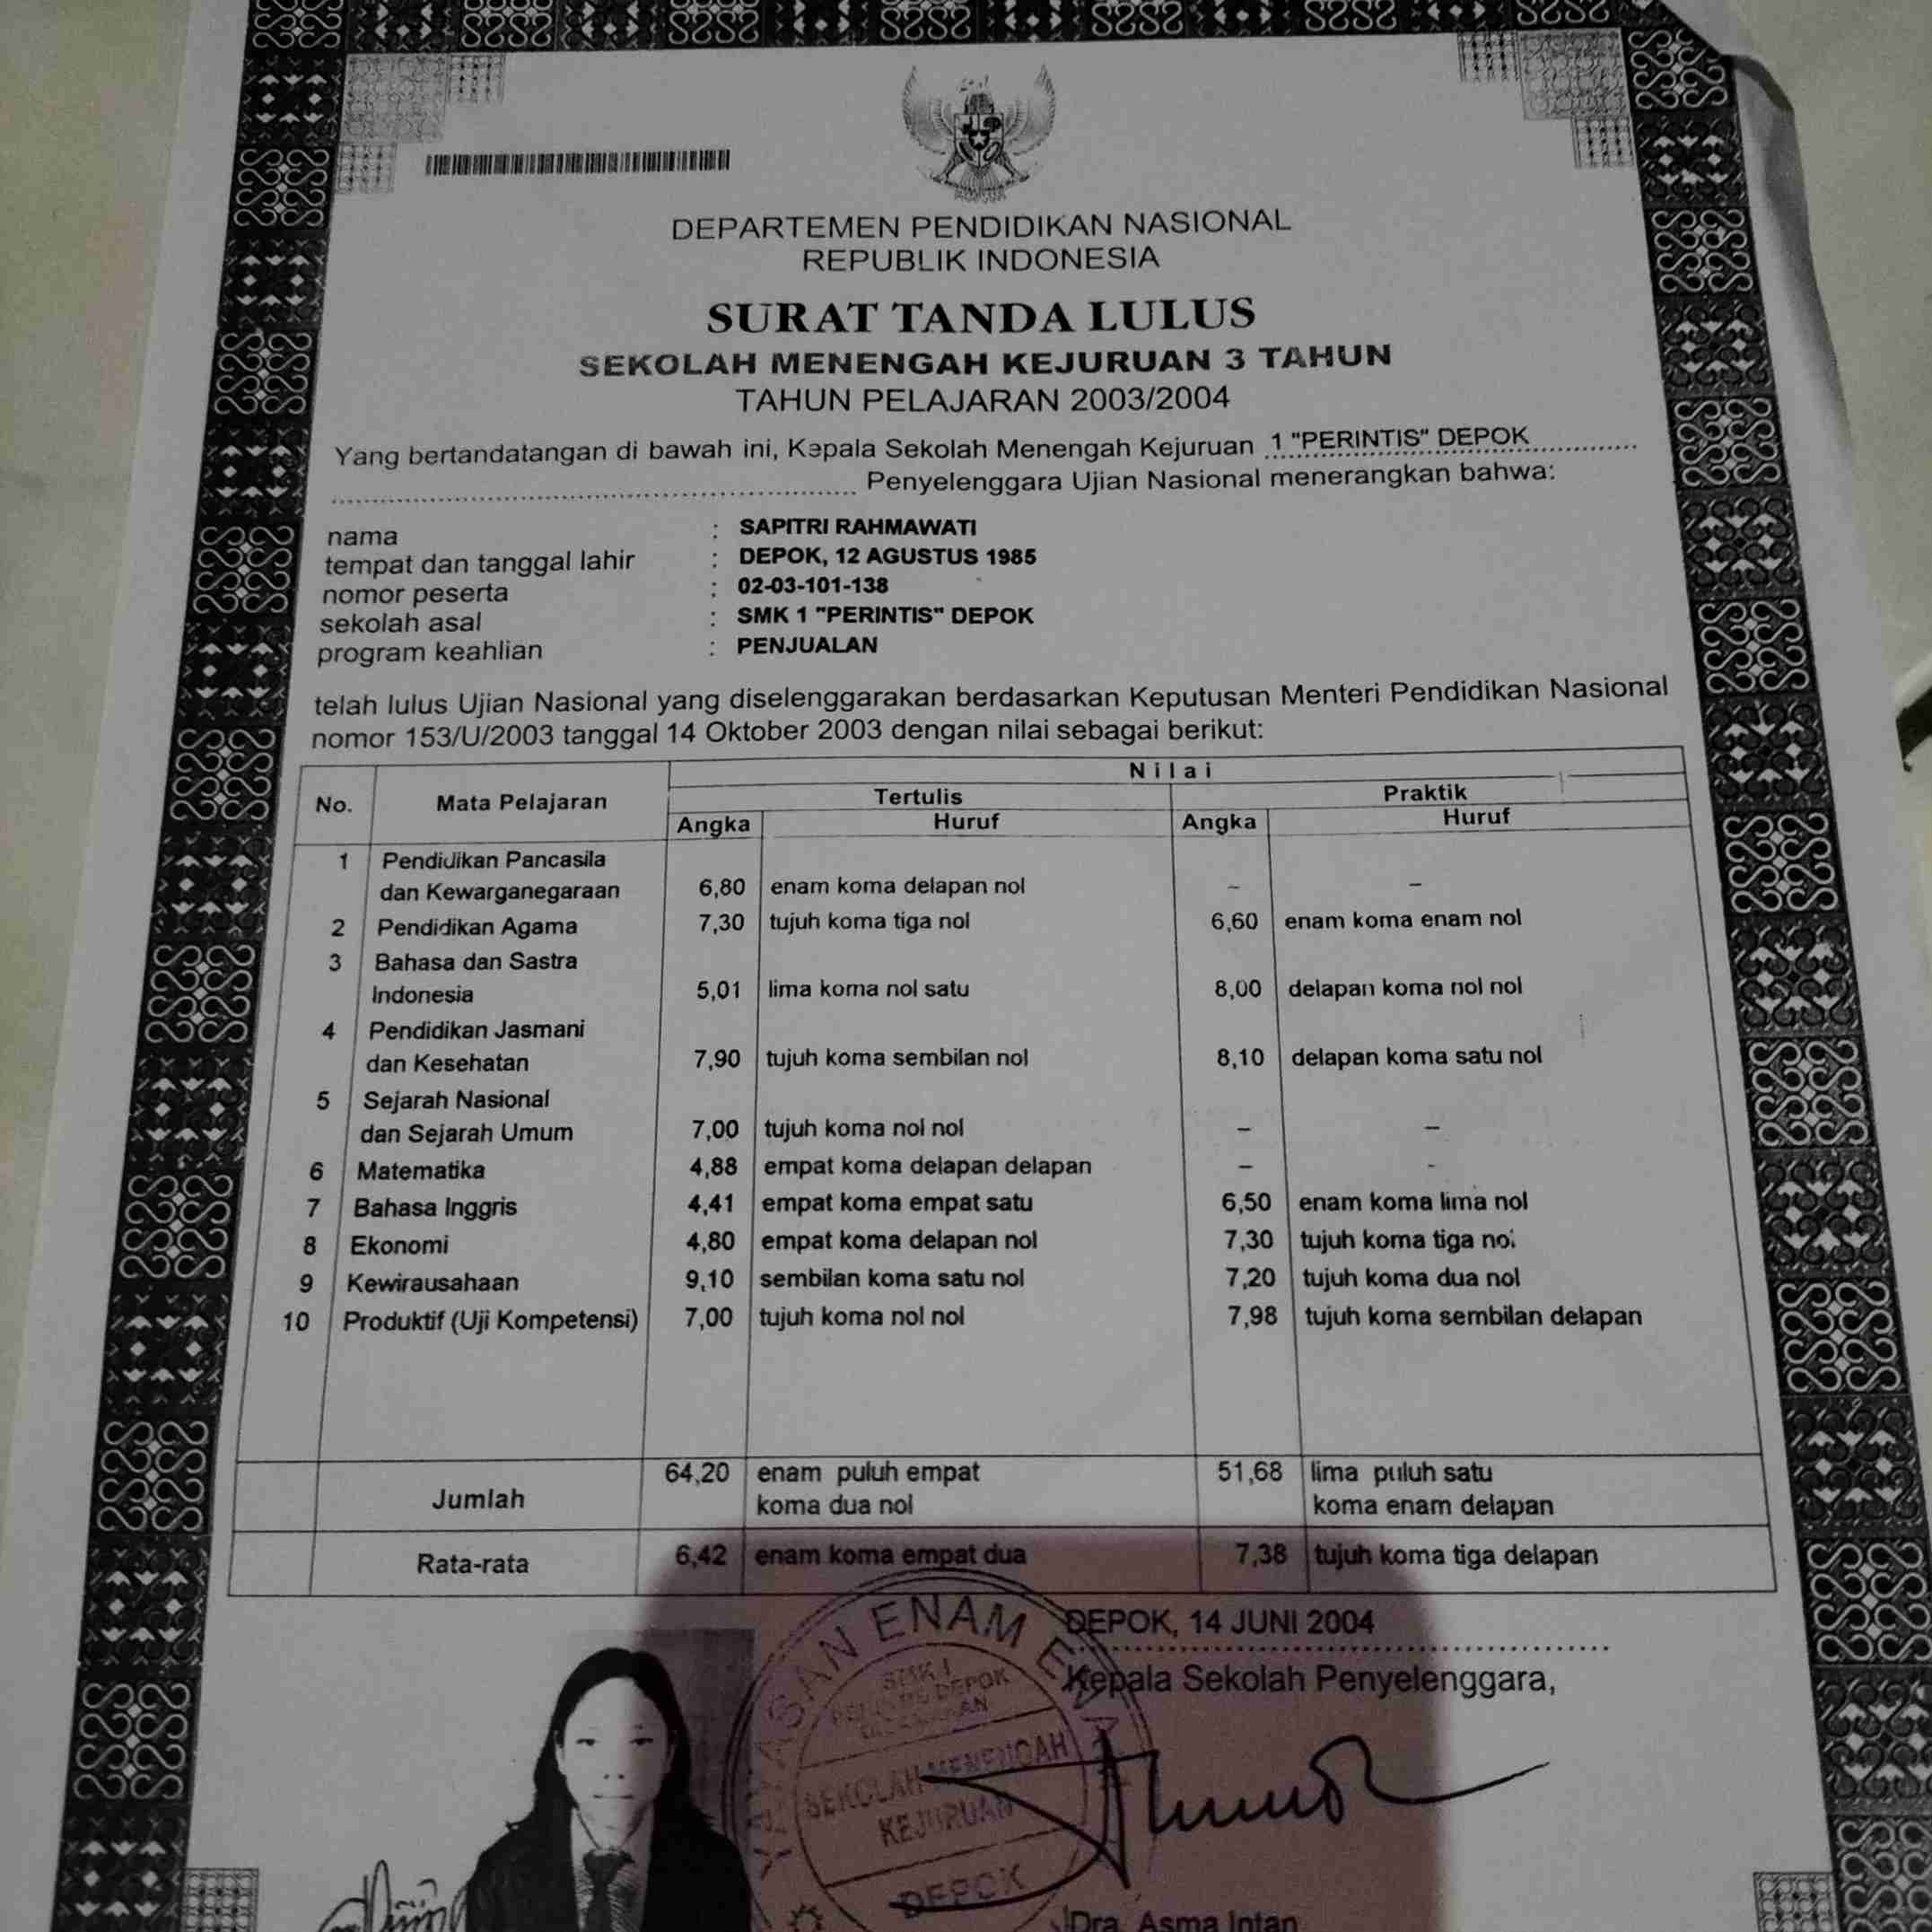 DEPARTEMEN PENDIDIKAN NASIONAL
REPUBLIK INDONESIA
SURAT TANDA LULUS
SEKOLAH MENENGAH KEJURUAN 3 TAHUN
TAHUN PELAJARAN 2003/2004
Yang bertandatangan di bawah ini, Kepala Sekolah Menengah Kejuruan 1 "PERINTIS" DEPOK
Penyelenggara Ujian Nasional menerangkan bahwa:
nama : SAPITRI RAHMAWATI
tempat dan tanggal lahir : DEPOK, 12 AGUSTUS 1985
nomor peserta : 02-03-101-138
sekolah asal : SMK 1 "PERINTIS" DEPOK
program keahlian : PENJUALAN
telah lulus Ujian Nasional yang diselenggarakan berdasarkan Keputusan Menteri Pendidikan Nasional
nomor 153/U/2003 tanggal 14 Oktober 2003 dengan nilai sebagai berikut:
Nilai
No. Mata Pelajaran Tertulis Praktik
Angka Huruf Angka Huruf
1 Pendidikan Pancasila
dan Kewarganegaraan 6,80 enam koma delapan nol – –
2 Pendidikan Agama 7,30 tujuh koma tiga nol 6,60 enam koma enam nol
3 Bahasa dan Sastra
Indonesia 5,01 lima koma nol satu 8,00 delapan koma nol nol
4 Pendidikan Jasmani
dan Kesehatan 7,90 tujuh koma sembilan nol 8,10 delapan koma satu nol
5 Sejarah Nasional
dan Sejarah Umum 7,00 tujuh koma nol nol – –
6 Matematika 4,88 empat koma delapan delapan – -
7 Bahasa Inggris 4,41 empat koma empat satu 6,50 enam koma lima nol
8 Ekonomi 4,80 empat koma delapan nol 7,30 tujuh koma tiga nol
9 Kewirausahaan 9,10 sembilan koma satu nol 7,20 tujuh koma dua nol
10 Produktif (Uji Kompetensi) 7,00 tujuh koma nol nol 7,98 tujuh koma sembilan delapan
Jumlah 64,20 enam puluh empat 51,68 lima puluh satu
koma dua nol koma enam delapan
Rata-rata 6,42 enam koma empat dua 7,38 tujuh koma tiga delapan
DEPOK, 14 JUNI 2004
Kepala Sekolah Penyelenggara,
YAYASAN ENAM ENAM
SMK 1
DEPOK
SEKOLAH MENENGAH
KEJURUAN
DEPOK
Dra. Asma Intan